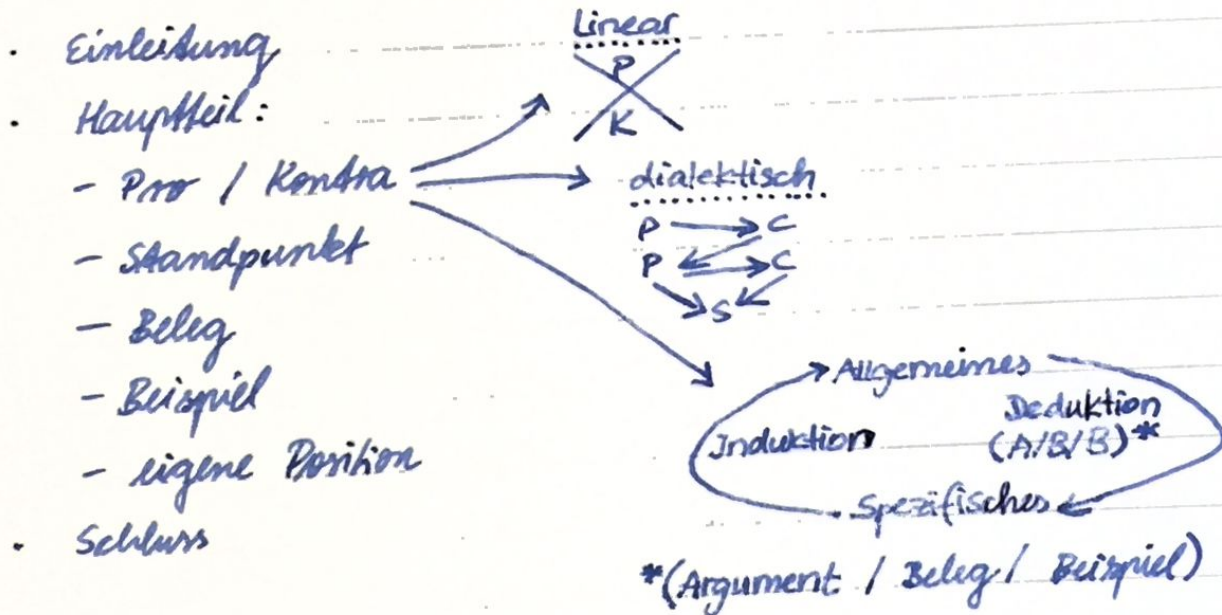 · Einleitung
· Hauptteil:
- Pro / Kontra
- Standpunkt
- Beleg
- Beispiel
- eigene Position
· Schluss
Linear
P
K
dialektisch
P → C
P → C
S
Allgemeines
Induktion
Deduktion
(A/B/B)*
Spezifisches
*(Argument / Beleg / Beispiel)